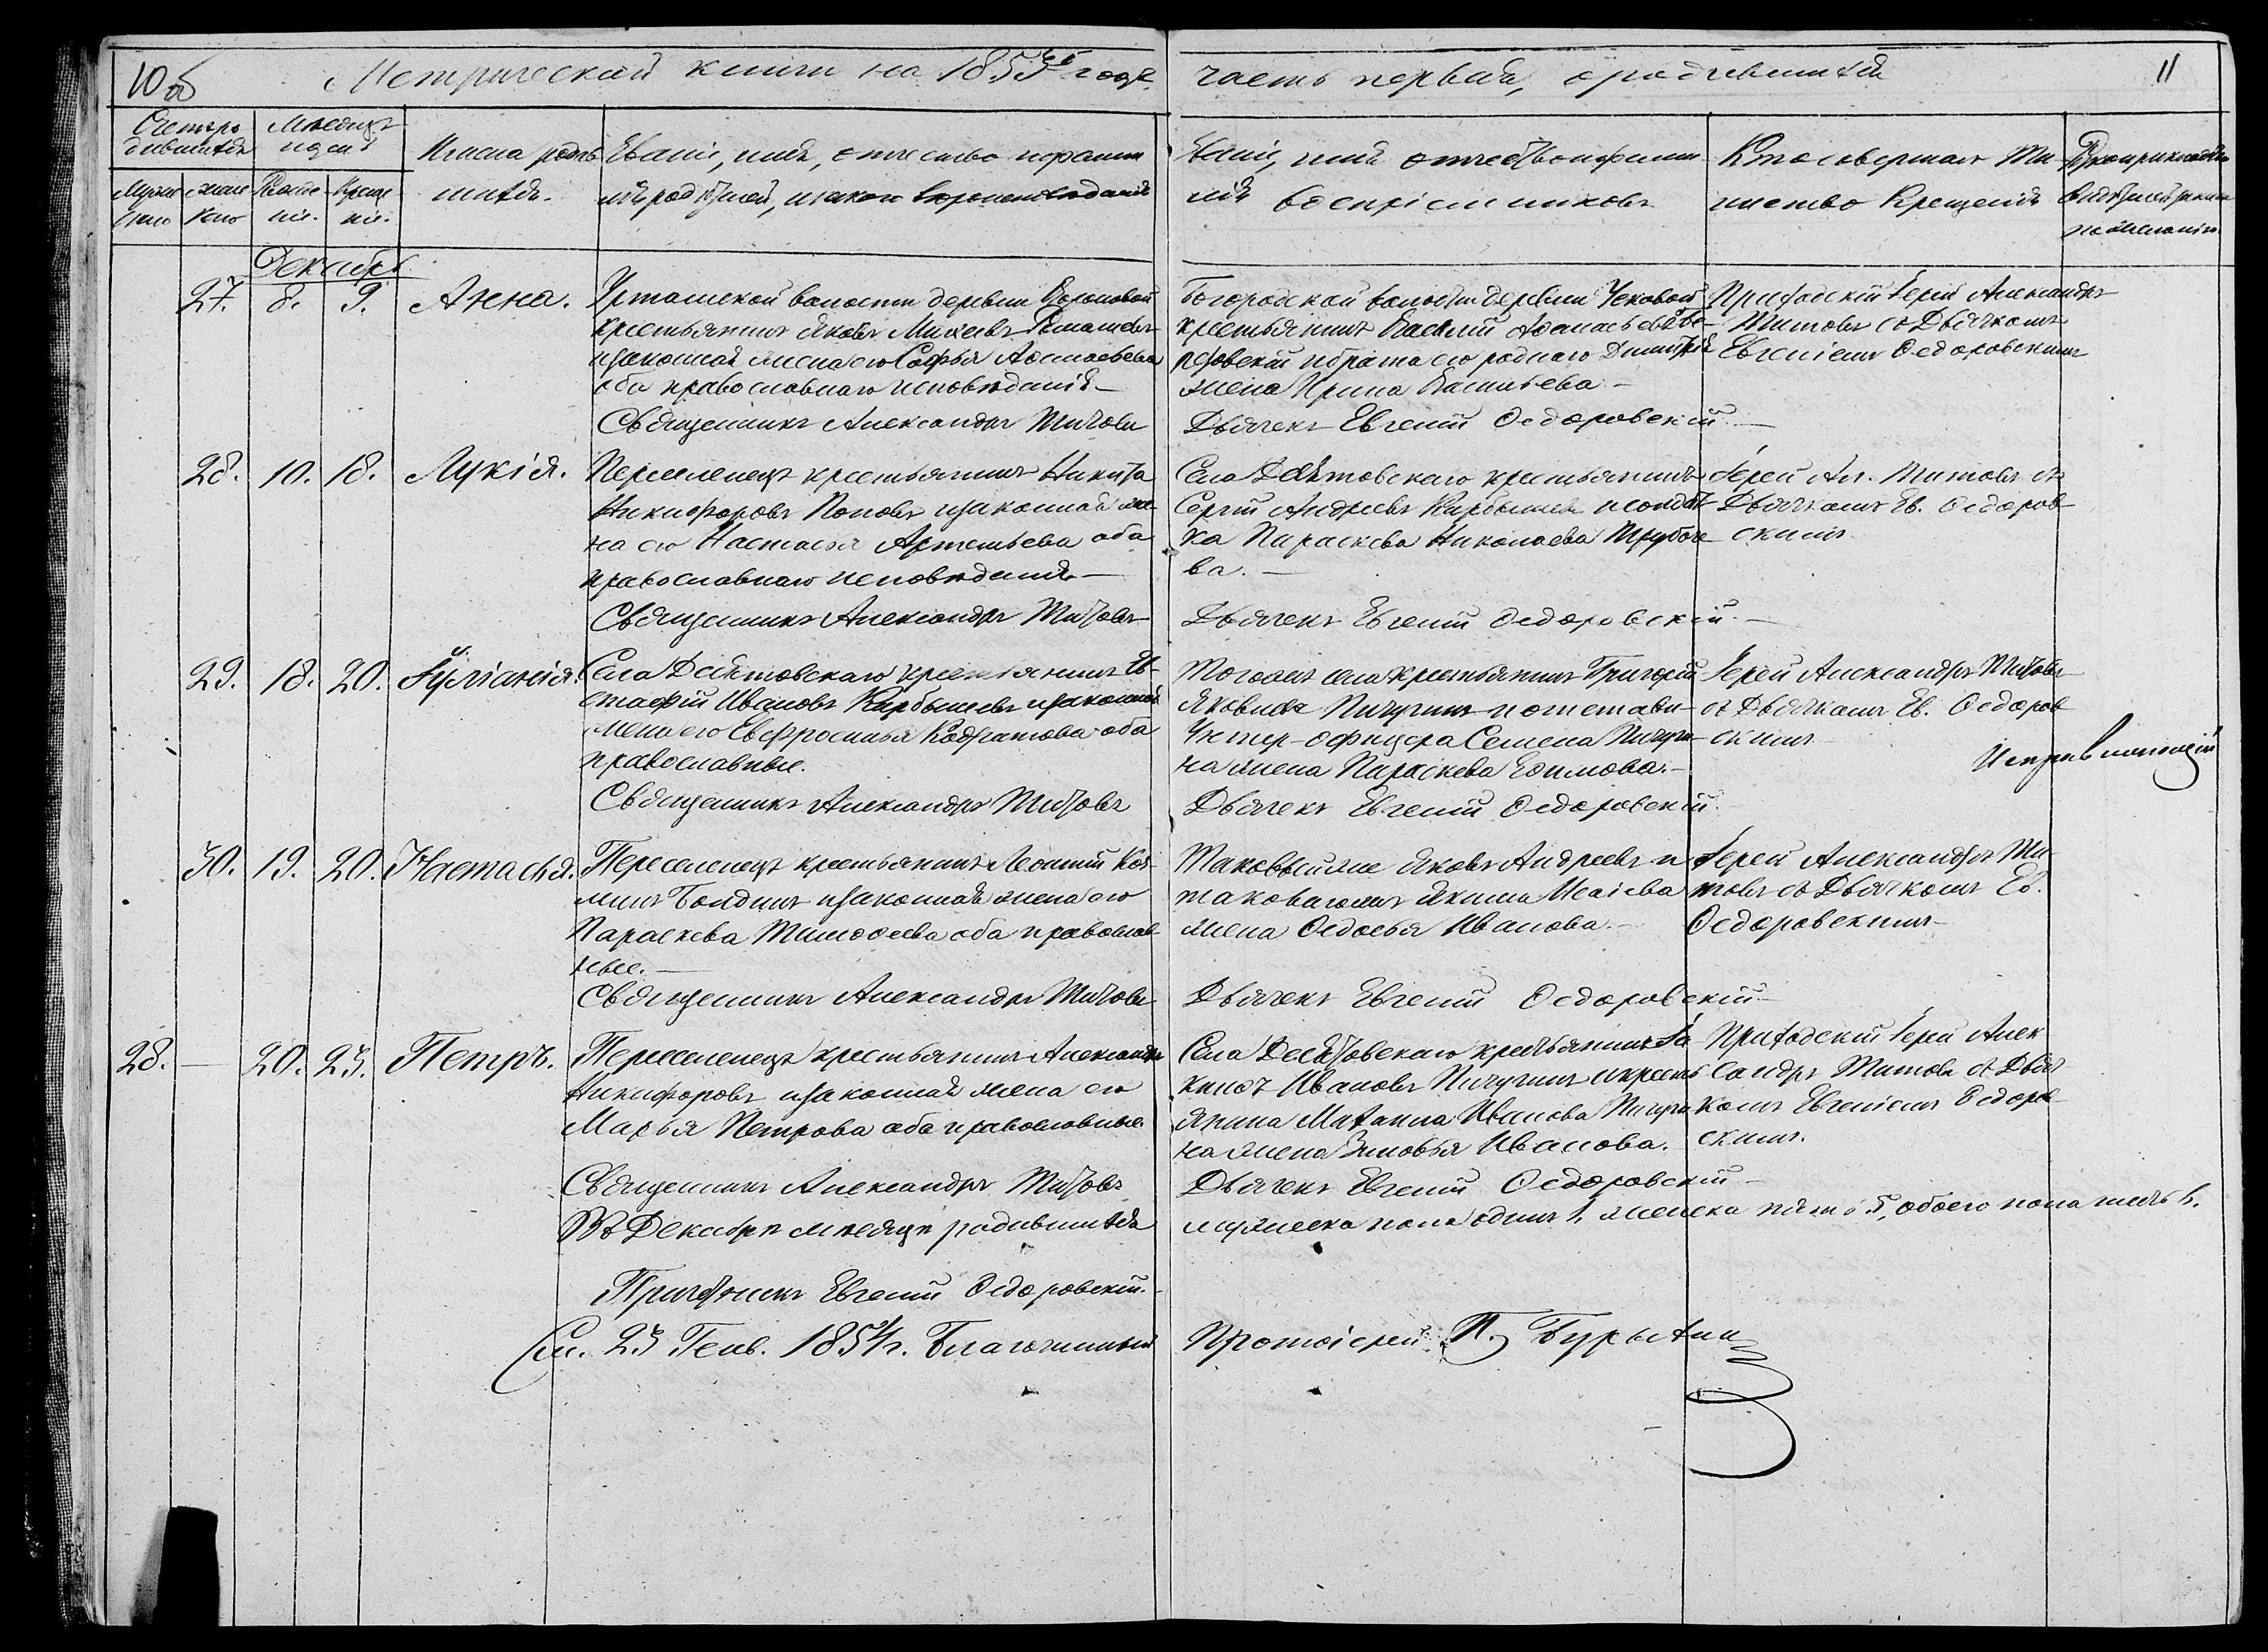 10 об
Метрической книги на 1853й годъ
часть первая, о родившихся
11
Счетъ ро
дившихся
Мѣсяцъ
и день
Имена родив
шихся.
Званіе, имя, отчество и фамил
ія родителей, и какого вѣроисповѣданія
Званіе, имя отчество и фамил
ія воспріемниковъ
Кто совершалъ Та
инство Крещенія
Рукоприкладство
свидѣтелей записи
по желанію.
Муже
ска
Жен
ска
Рожде
нія.
Креще
нія.
Декабрь
27. 8. 9. Анна.
Урташской волости деревни Вороновой
крестьянинъ Яковъ Михеевъ
и законная жена его Софья Афанасьева
оба православнаго исповѣданія —
Священникъ Александръ Титовъ
Богородской волости деревни Чековой
крестьянинъ Василій Афанасьевъ Бе-
резовскій и брата его роднаго Димитрія
жена Ирина Васильева. —
Дьячекъ Евгеній Ѳедоровскій. —
Приходскій Іерей Александръ
Титовъ съ Дьячкомъ
Евгеніемъ Ѳедоровскимъ
28. 10. 18. Лукія.
Переселенецъ крестьянинъ Никита
Никифоровъ Поповъ и законная же-
на его Настасья Артемьева оба
православнаго исповѣданія. —
Священникъ Александръ Титовъ
Села Десятовскаго крестьянинъ
Сергій Андреевъ Карбышевъ и солдат-
ка Параскева Николаева Трубаче-
ва. —
Дьячекъ Евгеній Ѳедоровскій. —
Іерей Ал. Титовъ съ
Дьячкомъ Ев. Ѳедоров-
скимъ.
29. 18. 20. Іуліанія.
Села Десятовскаго крестьянинъ Ев-
стафій Ивановъ Карбышевъ и законная
жена его Евфросинья Кодратова оба
православные.
Священникъ Александръ Титовъ
Тогоже села крестьянинъ Григорій
Яковлевъ Пичугинъ и отставн-
Унтер-офицера Семена Пичуги-
на жена Параскева Ефимова. —
Дьячекъ Евгеній Ѳедоровскій.
Іерей Александръ Титовъ
съ Дьячкомъ Ев. Ѳедоров
скимъ
Исправляющій
30. 19. 20. Настасья.
Переселенецъ крестьянинъ Леонтій Коз-
минъ Бондинъ и законная жена его
Параскева Тимофеева оба православ-
ные. —
Священникъ Александръ Титовъ
Таковый же Яковъ Андреевъ и
таковагожъ Якима Исаіева
жена Ѳедосья Иванова. —
Дьячекъ Евгеній Ѳедоровскій —
Іерей Александръ Ти-
товъ съ Дьячкомъ Ев.
Ѳедоровскимъ —
28. — 20. 23. Петръ.
Переселенецъ крестьянинъ Александръ
Никифоровъ и законная жена его
Марья Петрова оба православные.
Священникъ Александръ Титовъ
Села Десятовскаго крестьянинъ Іа-
кинѳъ Ивановъ Пичугинъ и кресть
янина Михаила Иванова Пичуги-
на жена Зиновья Иванова.
Дьячекъ Евгеній Ѳедоровскій —
Приходскій Іерей Алек
сандръ Титовъ съ Дьяч
комъ Евгеніемъ Ѳедоров
скимъ.
Въ Декабрѣ мѣсяцѣ родившихся
мужеска пола одинъ 1, женска пять 5, обоего пола шесть 6.
Причетникъ Евгеній Ѳедоровскій.
См. 23 Генв. 1854 г. Благочинный
Протоіерей П.